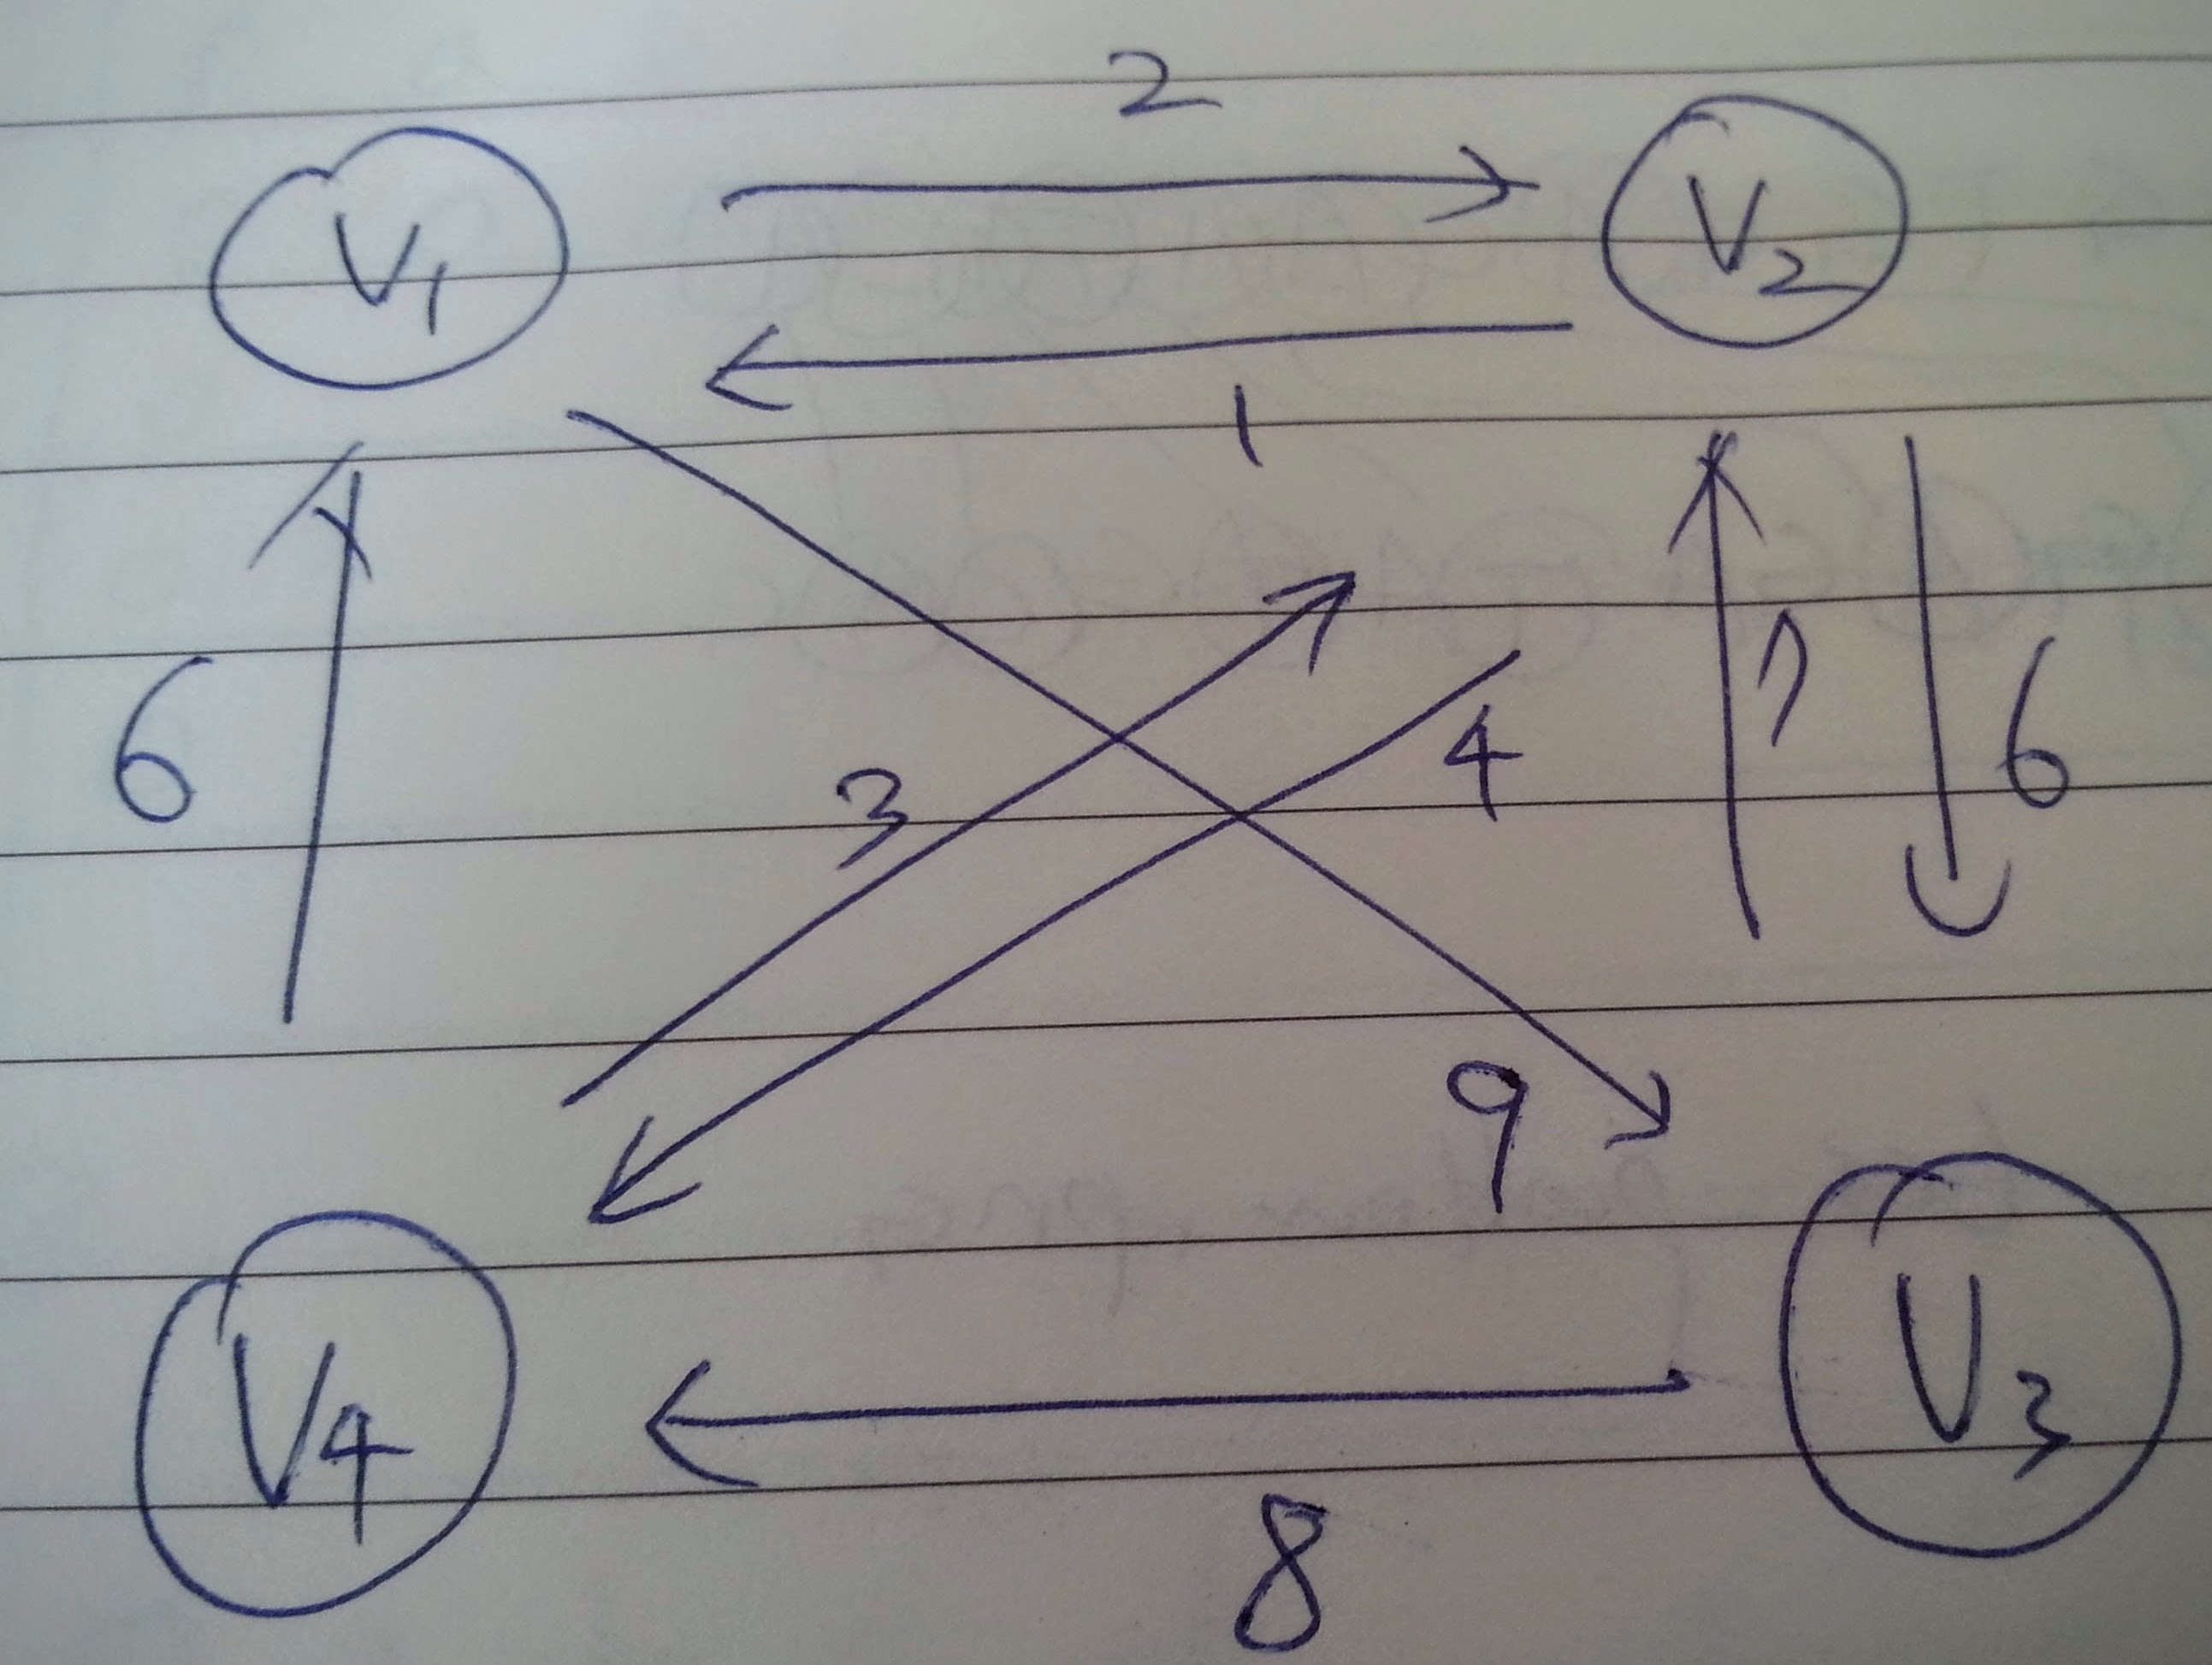 2
V1
V2
1
6
3
4
7
6
9
V4
V3
8